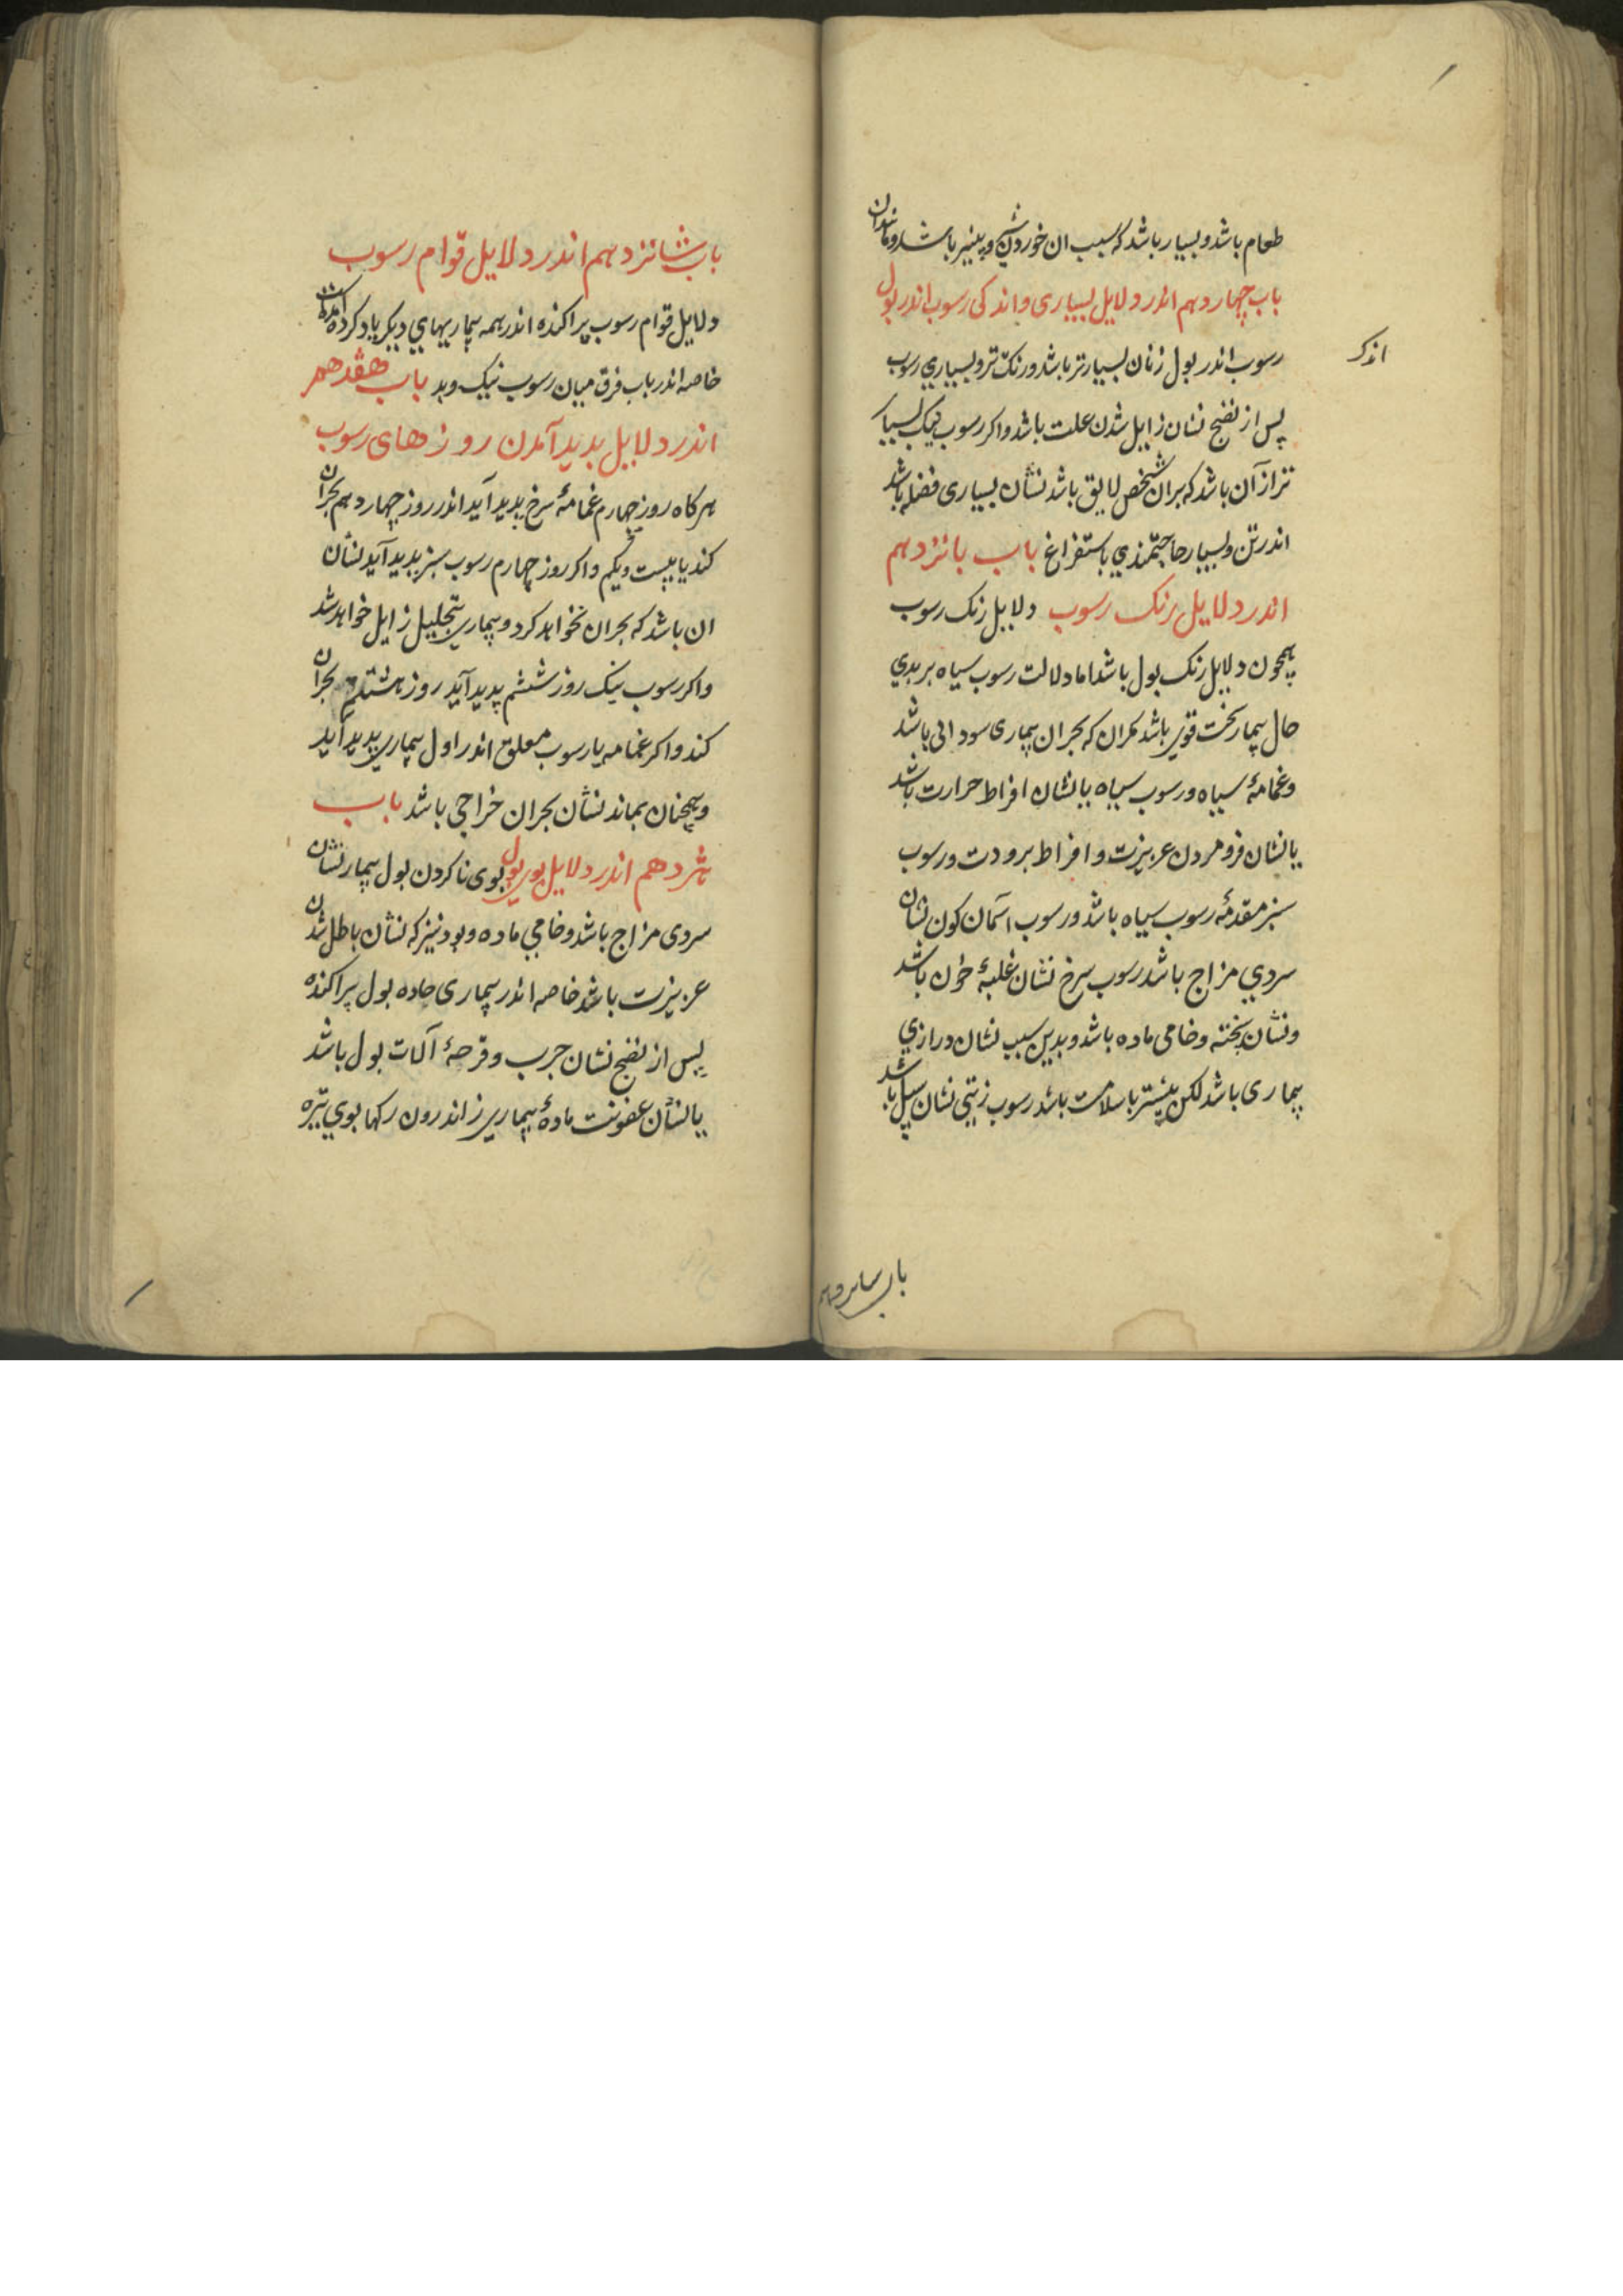 طعام باشد و بسیار باشد که سبب ان خوردن شیر و پنیر باشد و مانند ان
باب چهاردهم اندر دلایل بسیاری و اندکی رسوب اندر بول
اندک
رسوب اندر بول زنان بسیارتر باشد و رنک تر و بسیاری رسوب
پس از نضج نشان زایل شدن علت باشد و اکر رسوب نیک بسیار
تر از آن باشد که بران شخص لایق باشد نشان بسیاری فضله باشد
اندر تن و بسیار حاجتمندی باستفراغ باب پانزدهم
اندر دلایل رنک رسوب دلایل رنک رسوب
همچون دلایل رنک بول باشد اما دلالت رسوب سیاه بر بدی
حال بیمار سخت قوی باشد مکر ان که بحران بیماری سودایی باشد
و غمامهٔ سیاه و رسوب سیاه یا نشان افراط حرارت باشد
یا نشان فرو مردن عزیزت و افراط برودت و رسوب
سبز مقدمهٔ رسوب سیاه باشد و رسوب آسمان کون نشان
سردی مزاج باشد رسوب سرخ نشان غلبهٔ خون باشد
و نشان پخته و خامی ماده باشد و بدین سبب نشان درازی
بیماری باشد لکن بیشتر با سلامت باشد رسوب زیتی نشان سل باشد
باب شانزدهم
باب شانزدهم اندر دلایل قوام رسوب
دلایل قوام رسوب پراکنده اندر همه بیماریهای دیکر یاد کرده آمده است
خاصه اندر باب فرق میان رسوب نیک و بد باب هفدهم
اندر دلایل بدید آمدن روزهای رسوب
هرکاه روز چهارم غمامهٔ سرخ بدید آید اندر روز چهاردهم بحران
کند یا بیست و یکم و اکر روز چهارم رسوب سبز بدید آید نشان
ان باشد که بحران نخواهد کرد و بیماری بتحلیل زایل خواهد شد
و اکر رسوب نیک روز ششم پدید آید روز هشتم بحران
کند و اکر غمامه یا رسوب معلق اندر اول بیماری بدید آید
و همچنان بماند نشان بحران خراجی باشد باب
هژدهم اندر دلایل بوی بول بوی ناکردن بول بیمار نشان
سردی مزاج باشد و خامی ماده و بود نیز که نشان باطل شدن
عزیزت باشد خاصه اندر بیماری حاده بول پراکنده
پس از نضج نشان جرب و قرحهٔ آلات بول باشد
یا نشان عفونت مادهٔ بیماری ز اندرون رکها بوی تیره